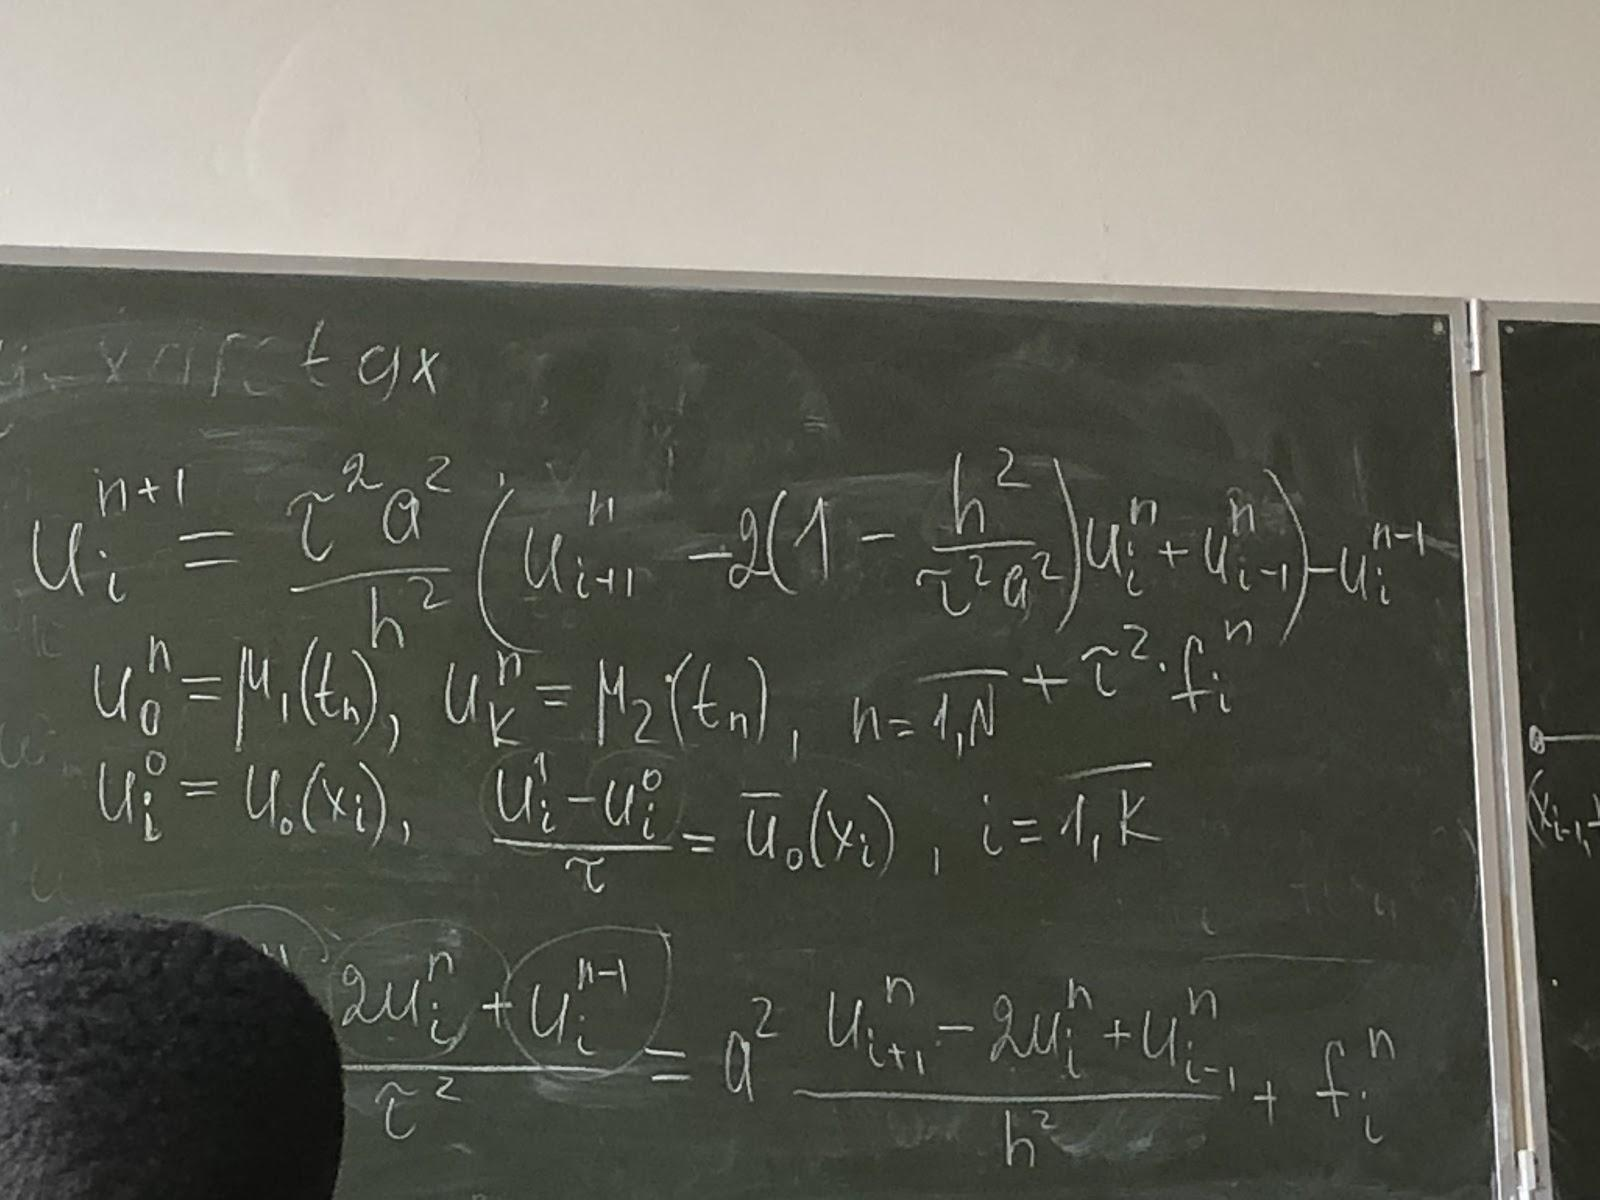 tgx
u_i^{n+1} = \frac{τ^2 a^2}{h^2} (u_{i+1}^n - 2(1 - \frac{h^2}{τ^2 a^2}) u_i^n + u_{i-1}^n) - u_i^{n-1}
+ τ^2 · f_i^n
u_0^n = μ_1(t_n), u_K^n = μ_2(t_n), n = \overline{1,N}
u_i^0 = u_0(x_i), \frac{u_i^1 - u_i^0}{τ} = \overline{u}_0(x_i), i = \overline{1,K}
\frac{2u_i^n + u_i^{n-1}}{τ^2} = a^2 \frac{u_{i+1}^n - 2u_i^n + u_{i-1}^n}{h^2} + f_i^n
(x_{i-1},